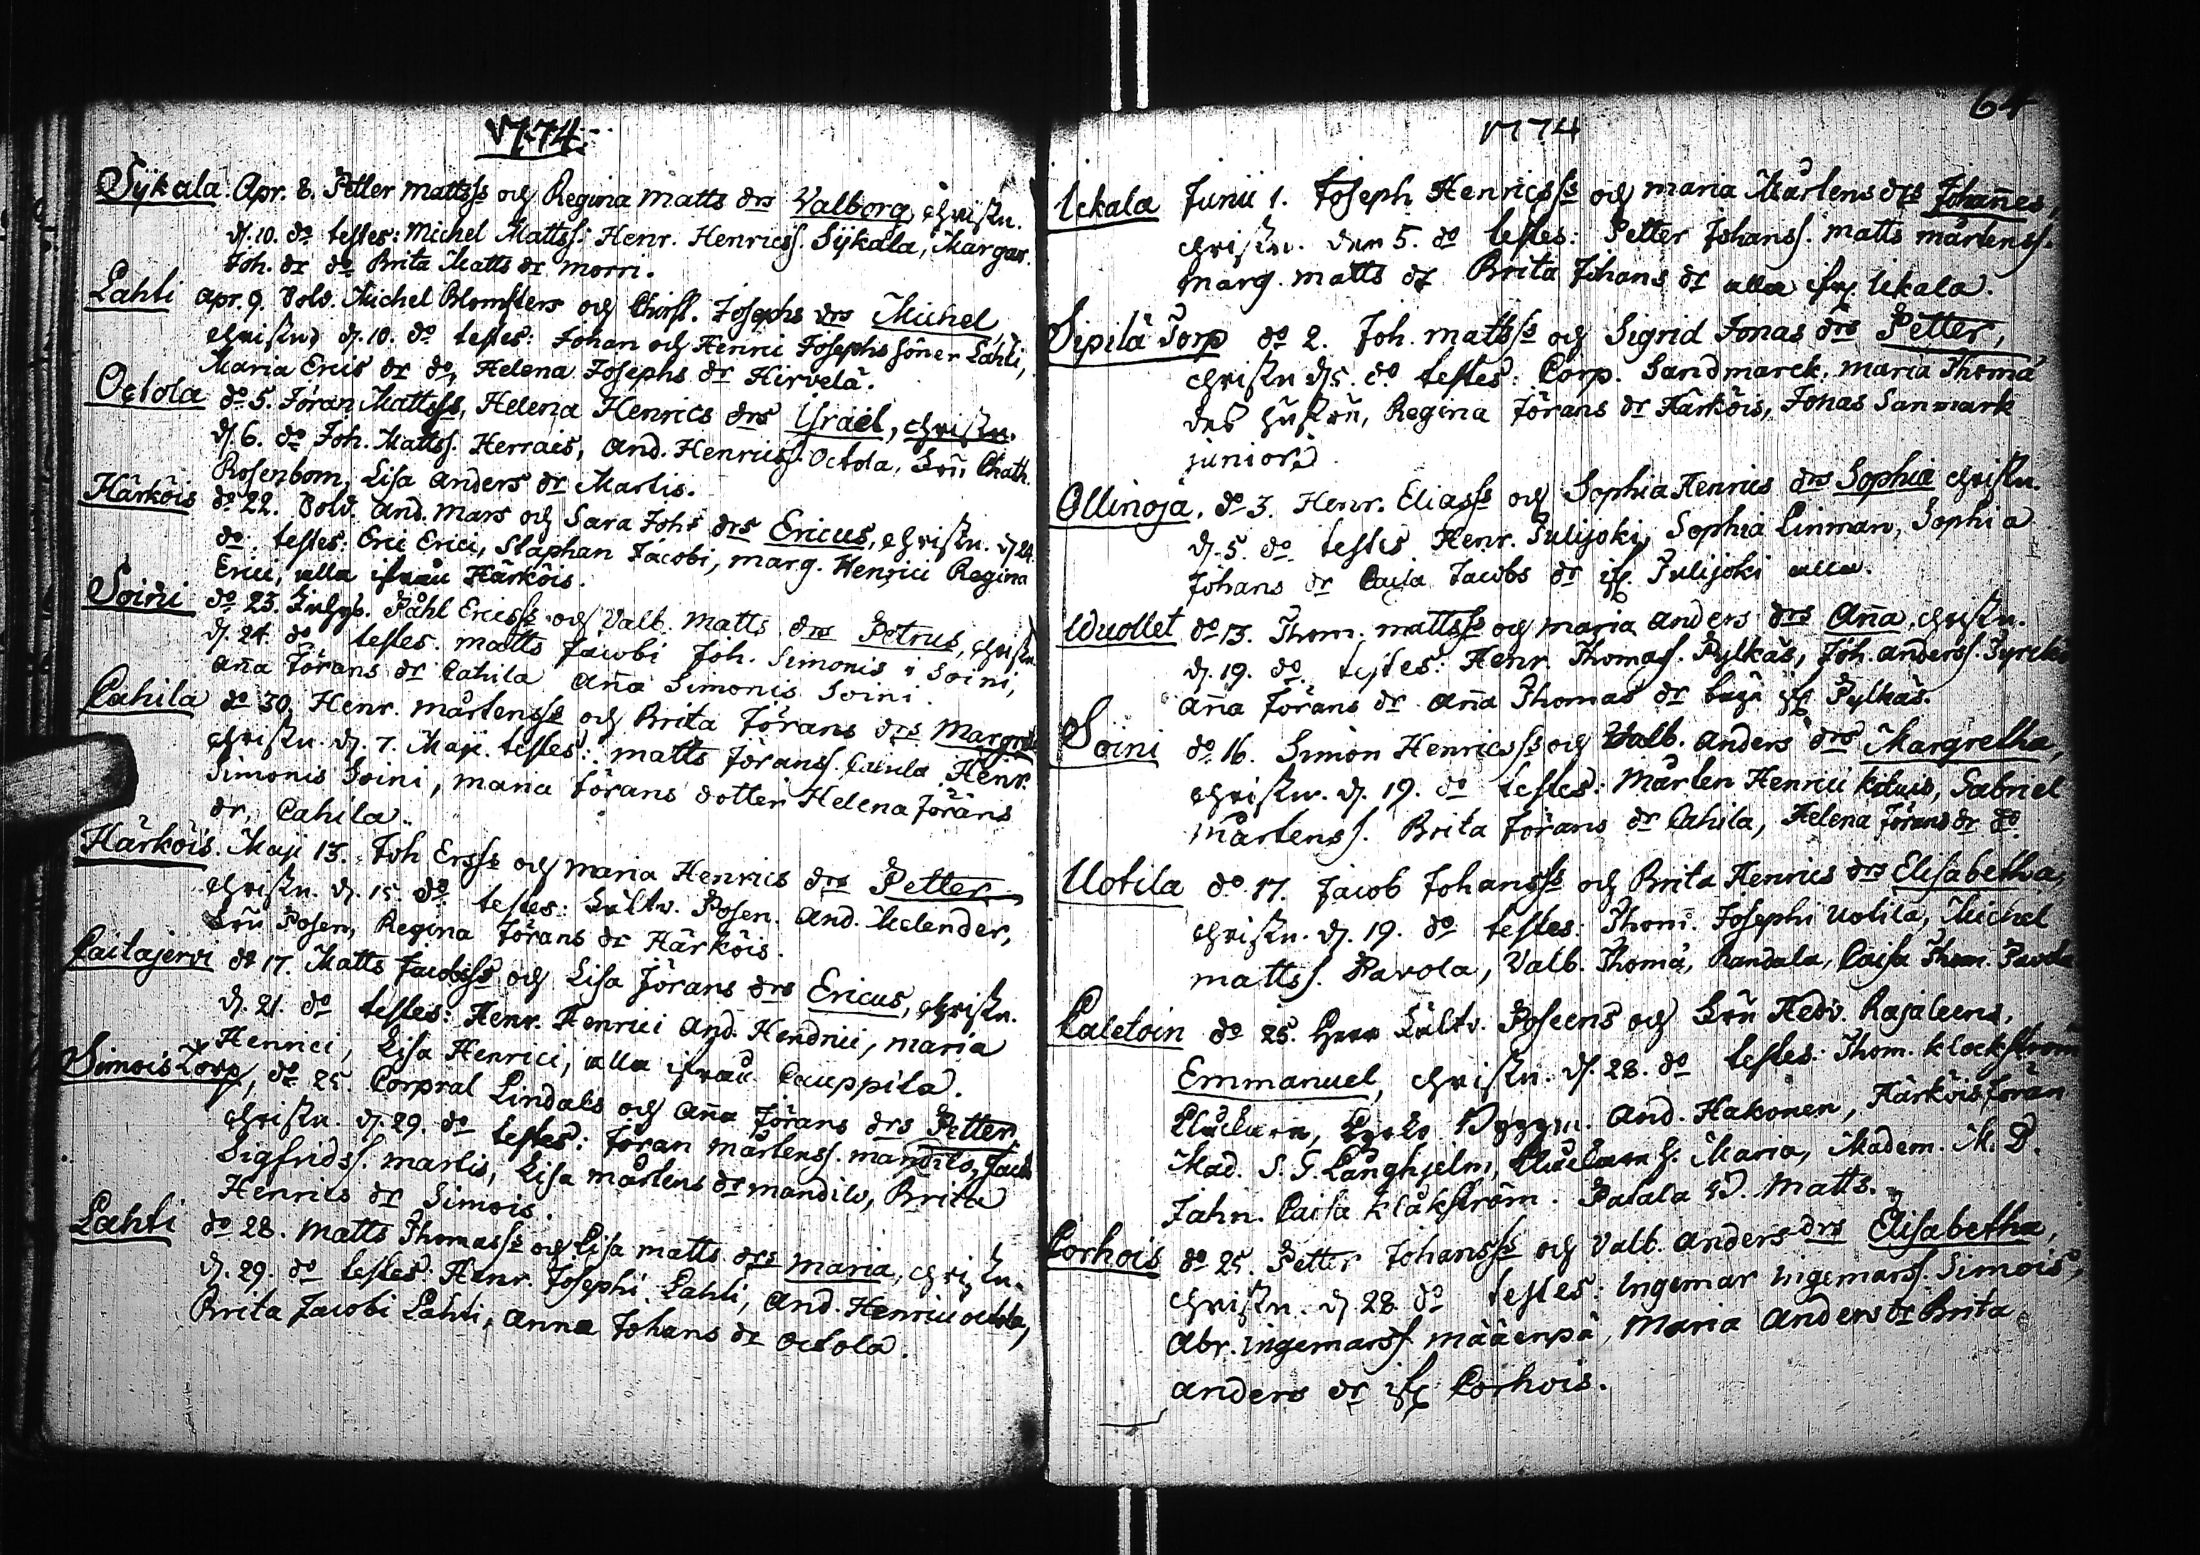 1774.
Sÿkala. Apr. 8. Petter Mattsss och Regina Matts drs Valborg, christn.
d. 10. do testes: Michel Mattss. Henr. Henricss. Sÿkala, Margar.
Joh. dr do Brita Matts dr Morri.
Lahti Apr. 9. Sold. Michel Blomsters och Christ. Josephs drs Michel,
christnd d. 10. do testes: Johan och Henric Josephs söner Lahti,
Maria Erics dr do, Helena Josephs dr Hirvelä.
Octola do 5. Jöran Mattsss, Helena Henrics drs Israel, christn.
d. 6. do Joh. Mattss. Herrais, And. Henricss. Octola, Chath.
Rosenbom, Lisa Anders dr Marlis.
Härköis do 22. Sold. And. Mars och Sara Johs drs Ericus, christn. d. 24
do testes: Eric Erici, Staphan Jacobi, Marg. Henrici Regina
Erici, alla ifrån Härköis.
Soini do 23. Påhl Ericsss och Valb. Matts drs Petrus, christn
d. 24. do testes. Matts Jacobi Joh. Simonis i Soini,
Aña Jörans dr Cahila Aña Simonis Soini.
Cahila do 30. Henr. Mårtensss och Brita Jörans drs Margret
christn. d. 7. Maji. testes: Matts Jöranss. Cahila, Henr.
Simonis Soini, Maria Jörans dotter Helena Jörans
dr, Cahila.
Härköis. Maji 13. Joh Ersss och Maria Henrics drs Petter
christn. d. 15. do testes: Posen. And. Melender,
Posen, Regina Jörans dr Härköis.
Caitajervi do 17. Matts Jacobsss och Lisa Jörans drs Ericus, christn.
d. 21. do testes: Henr. Henrici And. Hendrici, Maria
Henrici, Lisa Henrici, alla ifrån Cauppila.
Simois Torp, do 25. Corpral Lindals och Aña Jörans drs Petter
christn. d. 29. do testes: Jöran Mårtenss. Mandilo, Jacob
Sigfridss. Marlis, Lisa Mårtens dr Mandilo, Brita
Henrics dr Simois.
Lahti do 28. Matts Thomasss och Lisa Matts drs Maria, christn.
d. 29. do testes: Henr. Josephi Lahti, And. Henrici Octola,
Brita Jacobi Lahti, Anna Johans dr Octola.
64
1774
Uckala Junii 1. Joseph Henricsss och Maria Mårtens drs Johañes,
christn. den 5. do testes: Petter Johanss. Matts Mårtenss.
Marg. Matts dr Brita Johans dr alla ifr. Uckala.
Sipilä Torp do 2. Joh. Mattsss och Sigrid Jonas drs Petter,
christn d. 5. do testes: Corp. Sandmarck, Maria Thomä
des hustru, Regina Jörans dr Härköis, Jonas Sanmark
junior.
Ollinoja. do 3. Henr. Eliasss och Sophia Henrics drs Sophia christn.
d. 5. do testes Henr. Julijoki, Sophia Linman, Sophia
Johans dr Caisa Jacobs dr ifr. Julijoki alla.
Wuollet do 13. Thom. Mattsss och Maria Anders drs Aña, christn.
d. 19. do testes: Henr. Thomass. Pylkäs, Joh. Anderss.
Aña Jörans dr Aña Thomas dr ifr Pylkäs.
Soini do 16. Simon Henricsss och Valb. Anders drs Margretha,
christn. d. 19. do testes: Mårten Henrici, Gabriel
Mårtenss. Brita Jörans dr Cahila, Helena Jörans dr do
Uotila do 17. Jacob Johansss och Brita Henrics drs Elisabetha,
christn. d. 19. do testes: Thom. Josephi Uotila, Michel
Mattss. Pavola, Valb. Thomä, Randala, Caisa Thom. Pavola
Caletoin do 25. Herr Poseens och Hedv. Rajaleens,
Emmanuel, christn. d. 28. do testes: Thom. Klockström
And. Hakonen, Härköis Jöran
Mad. S. G. Långhjelm, Maria, Madem. M. D.
Jahn. Caisa Klåkström. Patala Matts.
Corhois do 25. Petter Johansss och Valb. Anders drs Elisabetha,
christn. d. 28 do testes: Ingemar Ingemarss. Simois,
Abr. Ingemarss. Määenpä, Maria Anders dr Brita
Anders dr ifr Corhois.